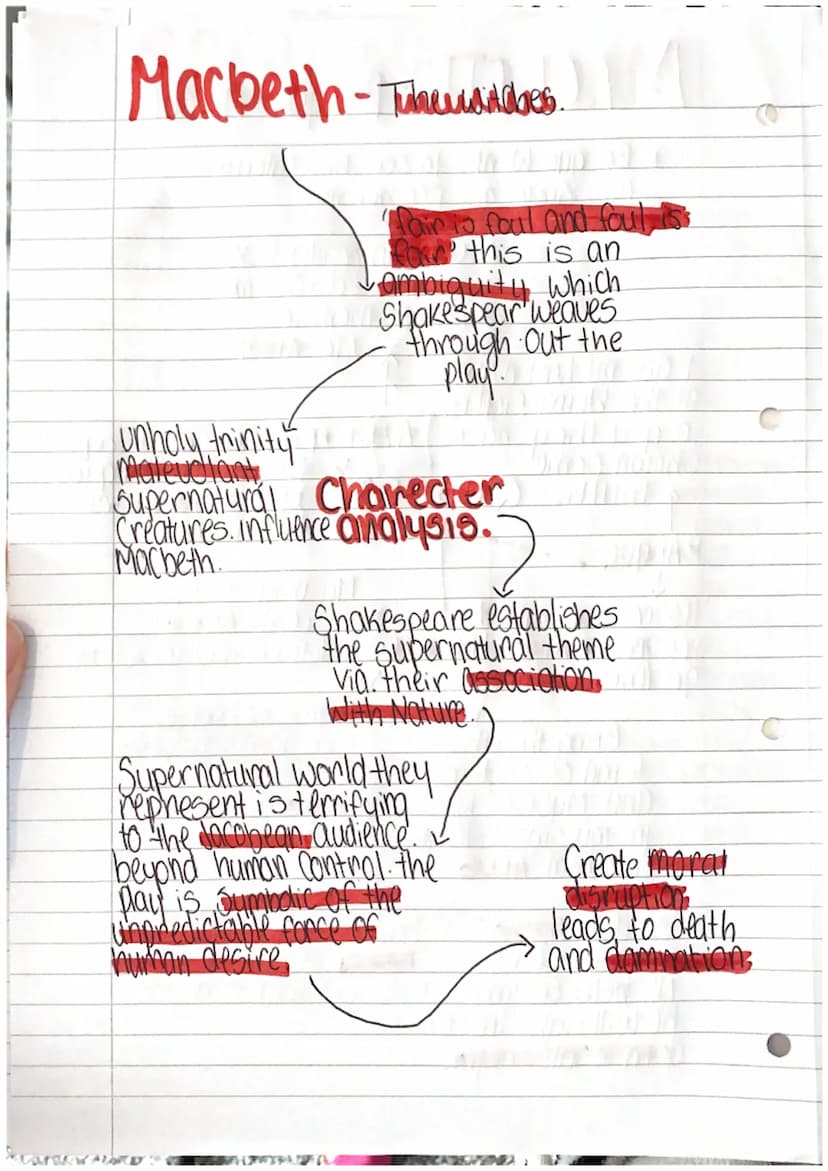 Macbeth - The witches.
'fair is foul and foul is
fair' this is an
ambiguity which
Shakespear weaves
through out the
play.
unholy trinity
malevolant
supernatural
Creatures. influence
Macbeth.
Charecter
analysis.
Shakespeare establishes
the supernatural theme
via. their association
with Nature.
Supernatural world they
represent is terrifying
to the Jacobean audience.
beyond human control. the
play is symbolic of the
unpredictable force of
human desire
Create moral
disruption
leads to death
and damnation.